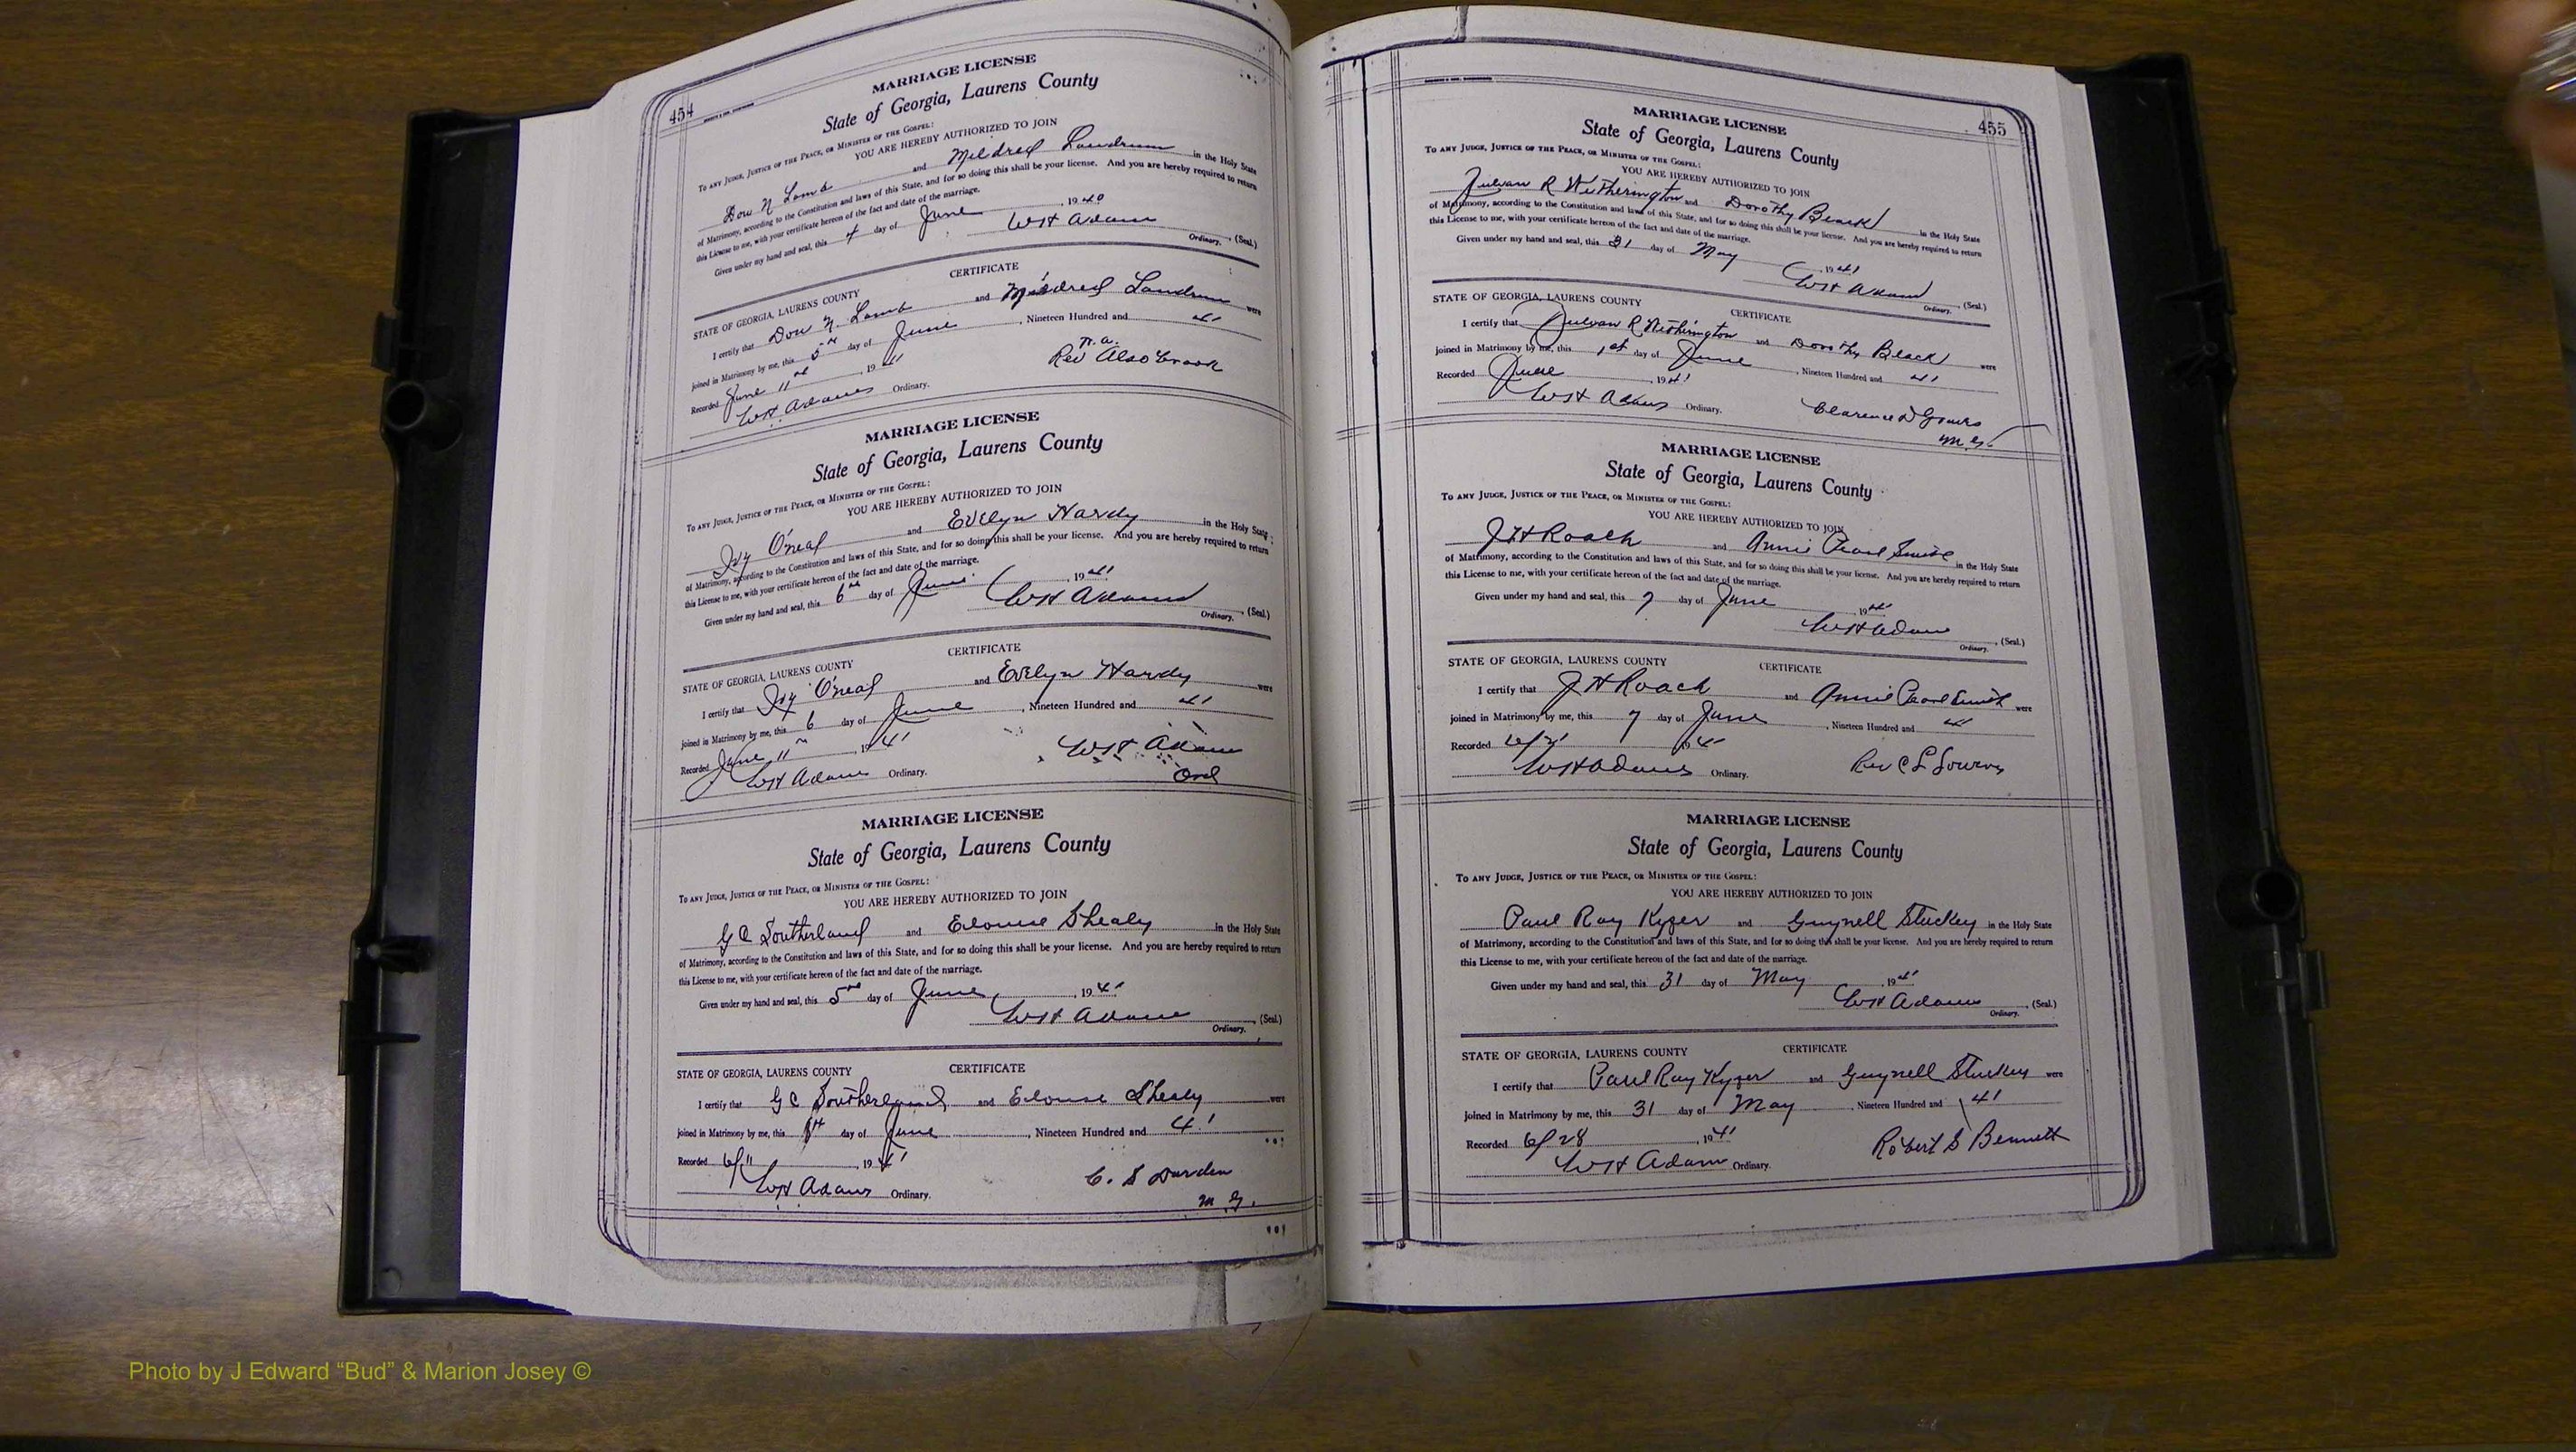 454
MARRIAGE LICENSE
State of Georgia, Laurens County
To any Judge, Justice of the Peace, or Minister of the Gospel:
YOU ARE HEREBY AUTHORIZED TO JOIN
Dow N Lamb and Mildred Landrum in the Holy State
of Matrimony, according to the Constitution and laws of this State, and for so doing this shall be your license. And you are hereby required to return
this License to me, with your certificate hereon of the fact and date of the marriage.
Given under my hand and seal, this 4 day of June, 1940
WH Adams (Seal.)
Ordinary.
CERTIFICATE
STATE OF GEORGIA, LAURENS COUNTY
I certify that Dow N. Lamb and Mildred Landrum were
joined in Matrimony by me, this 5th day of June, Nineteen Hundred and 41
Recorded June 11th, 1941
WH Adams Ordinary.
Rev Alsobrook
MARRIAGE LICENSE
State of Georgia, Laurens County
To any Judge, Justice of the Peace, or Minister of the Gospel:
YOU ARE HEREBY AUTHORIZED TO JOIN
Ivy O'neal and Evelyn Hardy in the Holy State
of Matrimony, according to the Constitution and laws of this State, and for so doing this shall be your license. And you are hereby required to return
this License to me, with your certificate hereon of the fact and date of the marriage.
Given under my hand and seal, this 6th day of June, 1941
WH Adams (Seal.)
Ordinary.
CERTIFICATE
STATE OF GEORGIA, LAURENS COUNTY
I certify that Ivy O'neal and Evelyn Hardy were
joined in Matrimony by me, this 6 day of June, Nineteen Hundred and 41
Recorded June 11th, 1941
WH Adams Ordinary.
WH Adams
Ord
MARRIAGE LICENSE
State of Georgia, Laurens County
To any Judge, Justice of the Peace, or Minister of the Gospel:
YOU ARE HEREBY AUTHORIZED TO JOIN
GC Southerland and Elouise Shealy in the Holy State
of Matrimony, according to the Constitution and laws of this State, and for so doing this shall be your license. And you are hereby required to return
this License to me, with your certificate hereon of the fact and date of the marriage.
Given under my hand and seal, this 5th day of June, 1941
WH Adams (Seal.)
Ordinary.
CERTIFICATE
STATE OF GEORGIA, LAURENS COUNTY
I certify that GC Southerland and Elouise Shealy were
joined in Matrimony by me, this day of June, Nineteen Hundred and 41
Recorded 6/11, 1941
WH Adams Ordinary.
C. S Durden
M.G.
455
MARRIAGE LICENSE
State of Georgia, Laurens County
To any Judge, Justice of the Peace, or Minister of the Gospel:
YOU ARE HEREBY AUTHORIZED TO JOIN
Julian R Witherington and Dorothy Beack in the Holy State
of Matrimony, according to the Constitution and laws of this State, and for so doing this shall be your license. And you are hereby required to return
this License to me, with your certificate hereon of the fact and date of the marriage.
Given under my hand and seal, this 31 day of May, 1941
WH Adams (Seal.)
Ordinary.
CERTIFICATE
STATE OF GEORGIA, LAURENS COUNTY
I certify that Julian R Witherington and Dorothy Beack were
joined in Matrimony by me, this 1st day of June, Nineteen Hundred and 41
Recorded June, 1941
WH Adams Ordinary.
Clarence D Graves
M.G.
MARRIAGE LICENSE
State of Georgia, Laurens County
To any Judge, Justice of the Peace, or Minister of the Gospel:
YOU ARE HEREBY AUTHORIZED TO JOIN
JH Roach and Annie Pearl Smith in the Holy State
of Matrimony, according to the Constitution and laws of this State, and for so doing this shall be your license. And you are hereby required to return
this License to me, with your certificate hereon of the fact and date of the marriage.
Given under my hand and seal, this 7 day of June, 1941
WH Adams (Seal.)
Ordinary.
CERTIFICATE
STATE OF GEORGIA, LAURENS COUNTY
I certify that JH Roach and Annie Pearl Smith were
joined in Matrimony by me, this 7 day of June, Nineteen Hundred and 41
Recorded 6/21 1941
WH Adams Ordinary.
Rev C L
MARRIAGE LICENSE
State of Georgia, Laurens County
To any Judge, Justice of the Peace, or Minister of the Gospel:
YOU ARE HEREBY AUTHORIZED TO JOIN
Paul Ray Kyzer and Guynell Stuckey in the Holy State
of Matrimony, according to the Constitution and laws of this State, and for so doing this shall be your license. And you are hereby required to return
this License to me, with your certificate hereon of the fact and date of the marriage.
Given under my hand and seal, this 31 day of May, 1941
WH Adams (Seal.)
Ordinary.
CERTIFICATE
STATE OF GEORGIA, LAURENS COUNTY
I certify that Paul Ray Kyzer and Guynell Stuckey were
joined in Matrimony by me, this 31 day of May, Nineteen Hundred and 41
Recorded 6/28, 1941
WH Adams Ordinary.
Robert S Bennett
Photo by J Edward “Bud” & Marion Josey ©